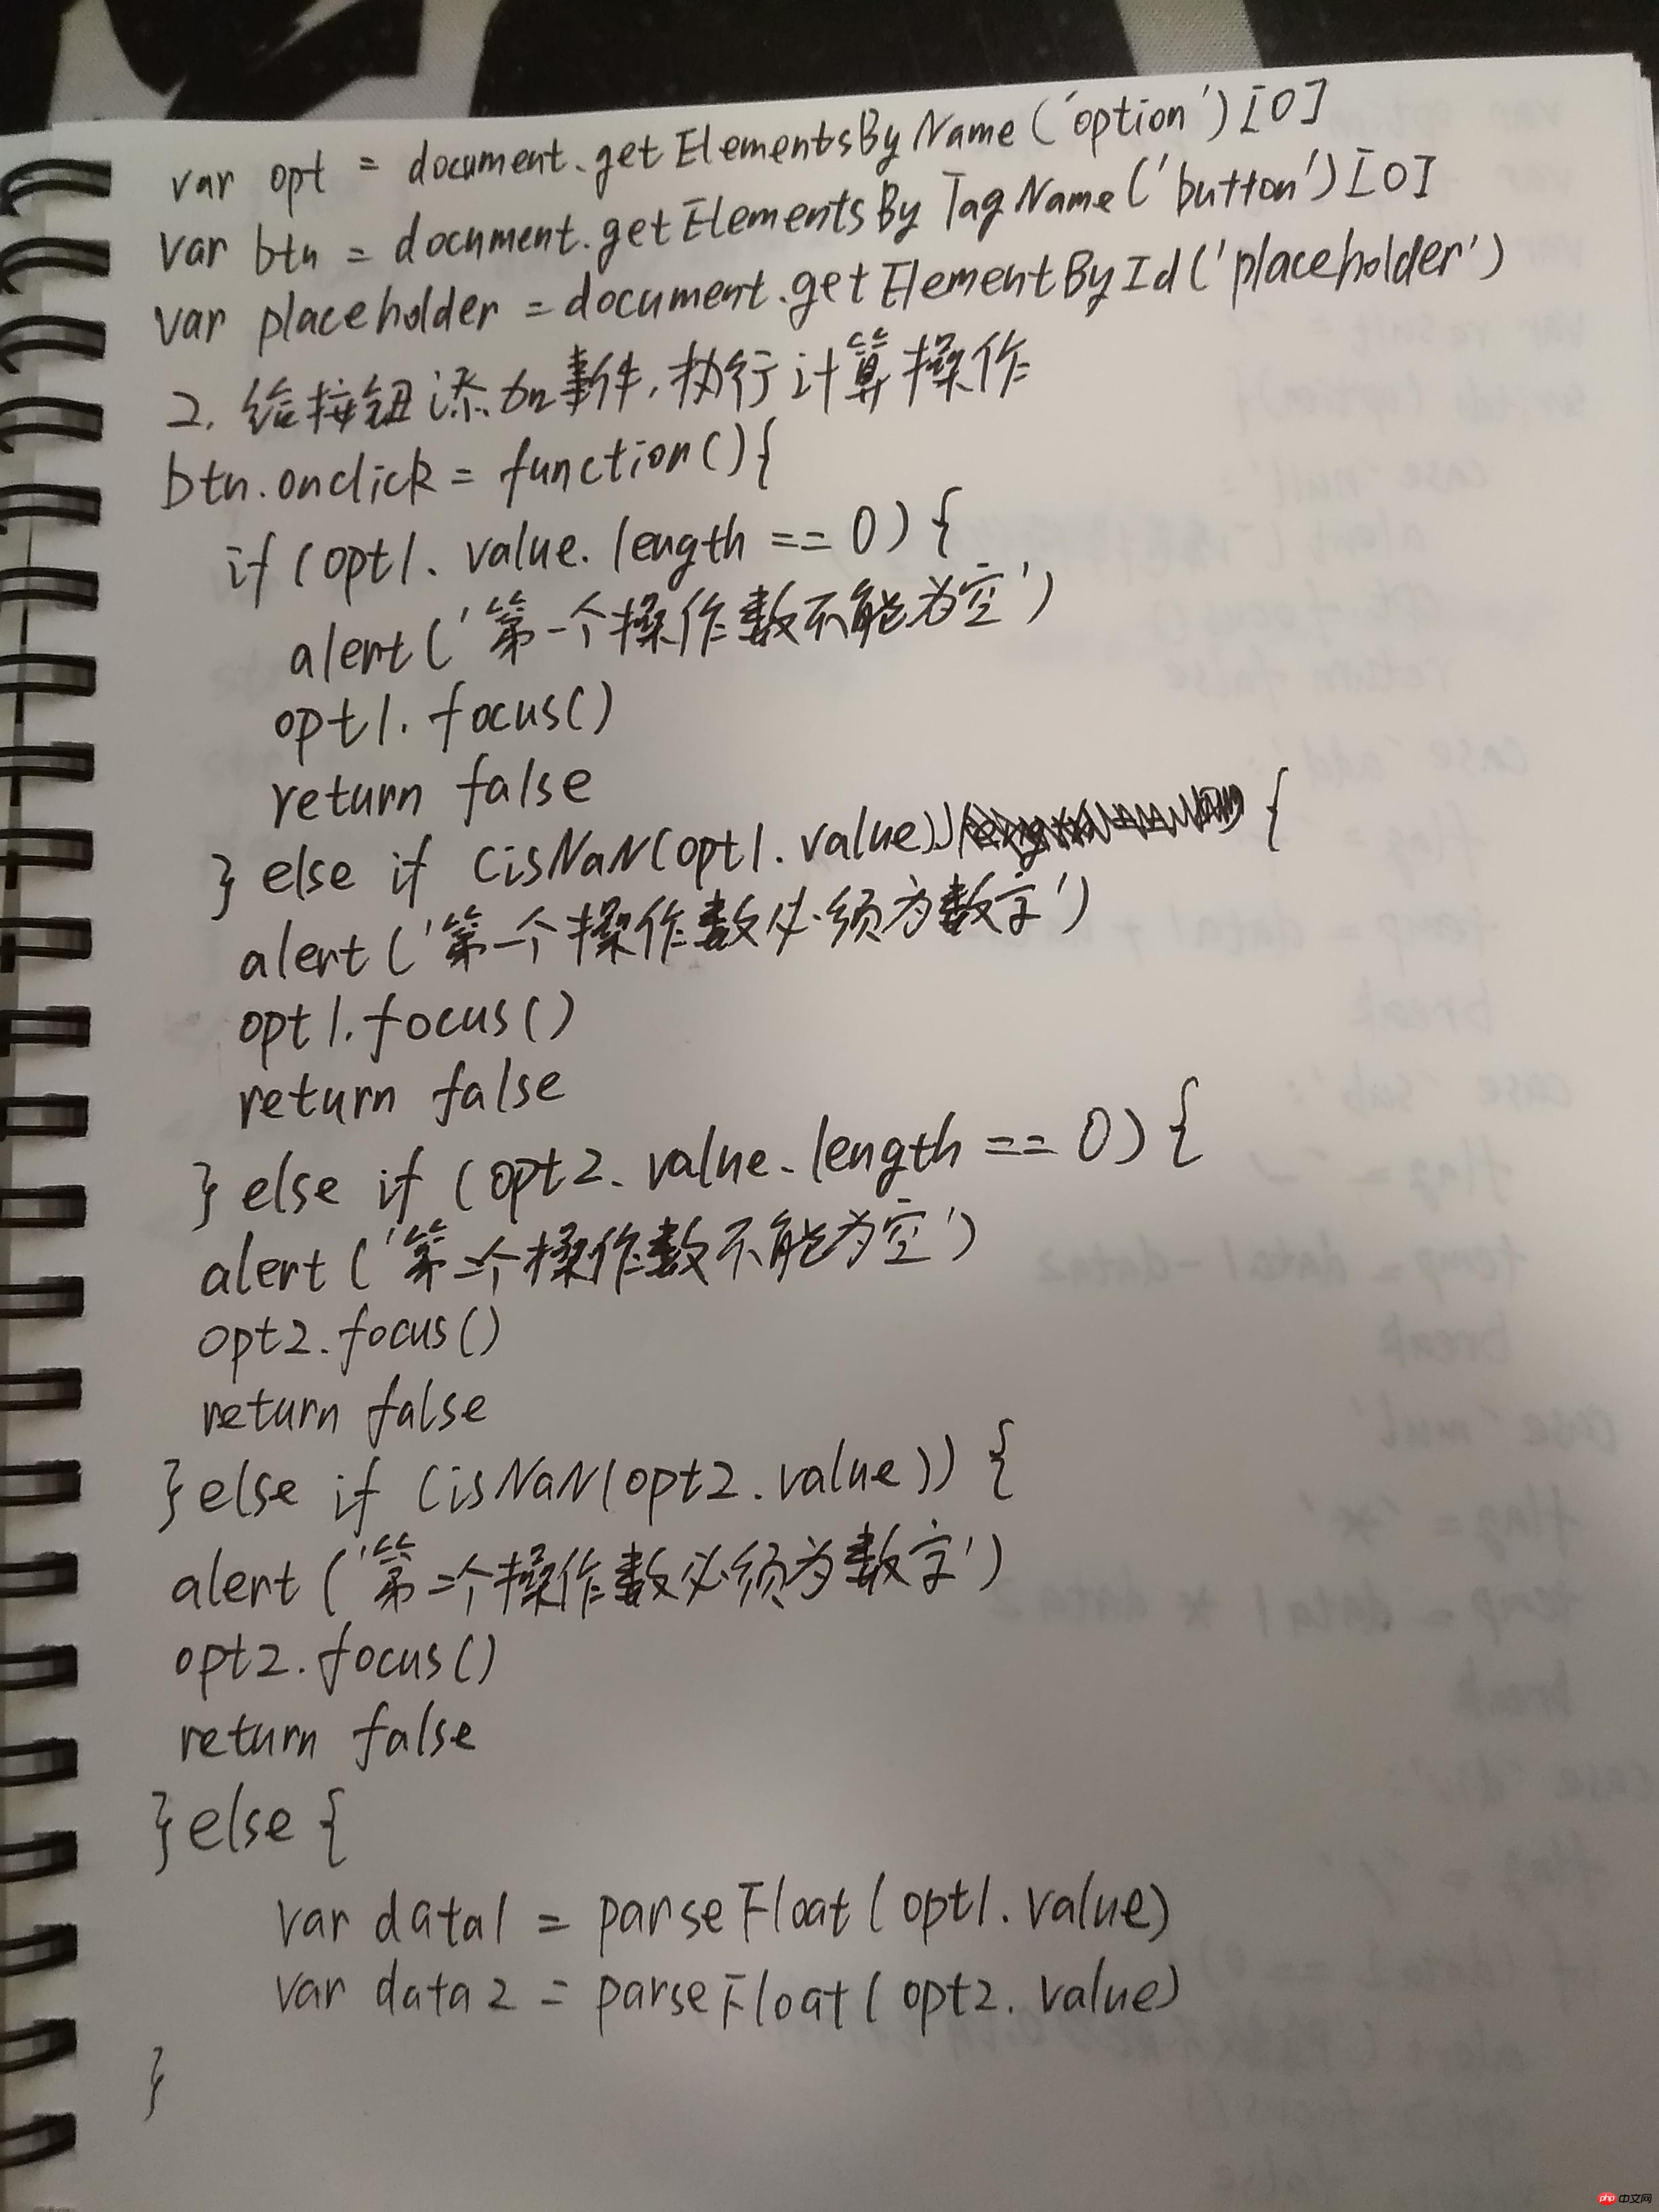 var opt = document.getElementsByName('option')[0]
var btn = document.getElementsByTagName('button')[0]
var placeholder = document.getElementById('placeholder')
2. 给按钮添加事件,执行计算操作
btn.onclick = function(){
if (opt1.value.length == 0) {
alert('第一个操作数不能为空')
opt1.focus()
return false
} else if (isNaN(opt1.value)) {
alert('第一个操作数必须为数字')
opt1.focus()
return false
} else if (opt2.value.length == 0) {
alert('第二个操作数不能为空')
opt2.focus()
return false
} else if (isNaN(opt2.value)) {
alert('第二个操作数必须为数字')
opt2.focus()
return false
} else {
var data1 = parseFloat(opt1.value)
var data2 = parseFloat(opt2.value)
}
php 中文网